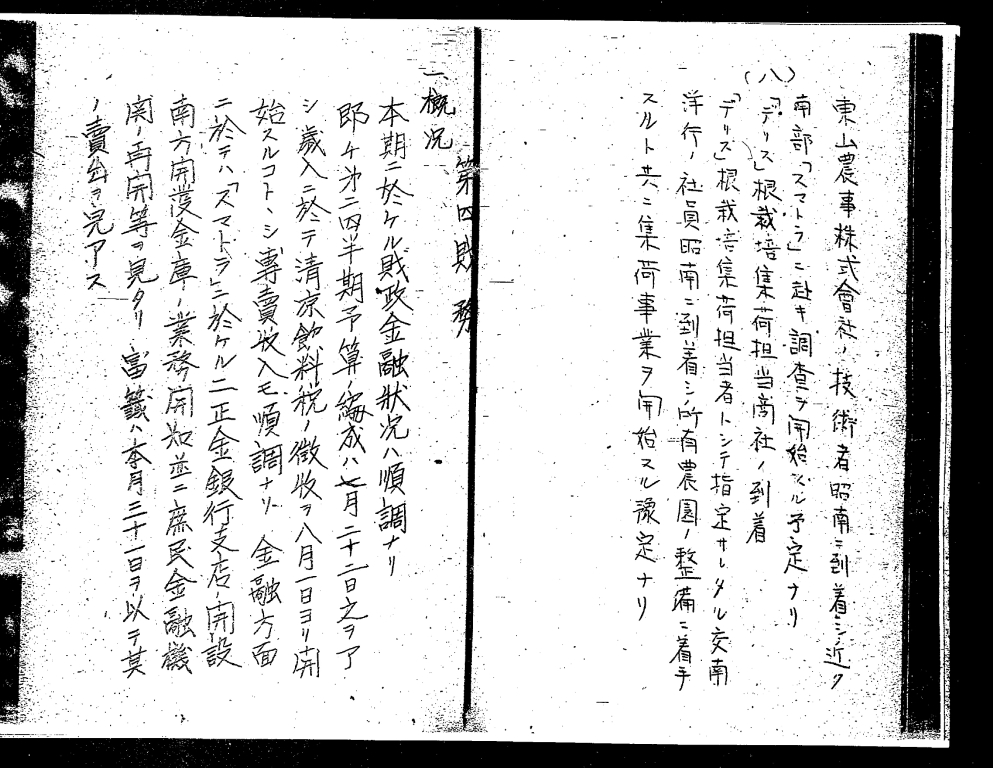 東山農事株式會社ノ技術者昭南ニ到着シ近ク
南部「スマトラ」ニ赴キ調査ヲ開始スル予定ナリ
(八)
「デリス」根栽培集荷担当商社ノ到着
「デリス」根栽培集荷担当者トシテ指定サレタル交南
洋行ノ社員昭南ニ到着シ所有農園ノ整備ニ着手
スルト共ニ集荷事業ヲ開始スル豫定ナリ
第四財務
一概況
本期ニ於ケル財政金融状況ハ順調ナリ
即チ第二四半期予算ノ編成ハ七月二十二日之ヲ了
シ歳入ニ於テ清凉飲料税ノ徴收ヲ八月一日ヨリ開
始スルコトヽシ專賣收入モ順調ナリ 金融方面
ニ於テハ「スマトラ」ニ於ケル二正金銀行支店ノ開設
南方開發金庫ノ業務開始並ニ庶民金融機
関ノ再開等ヲ見タリ 富籤ハ本月三十一日ヲ以テ其
ノ賣出ヲ完了ス